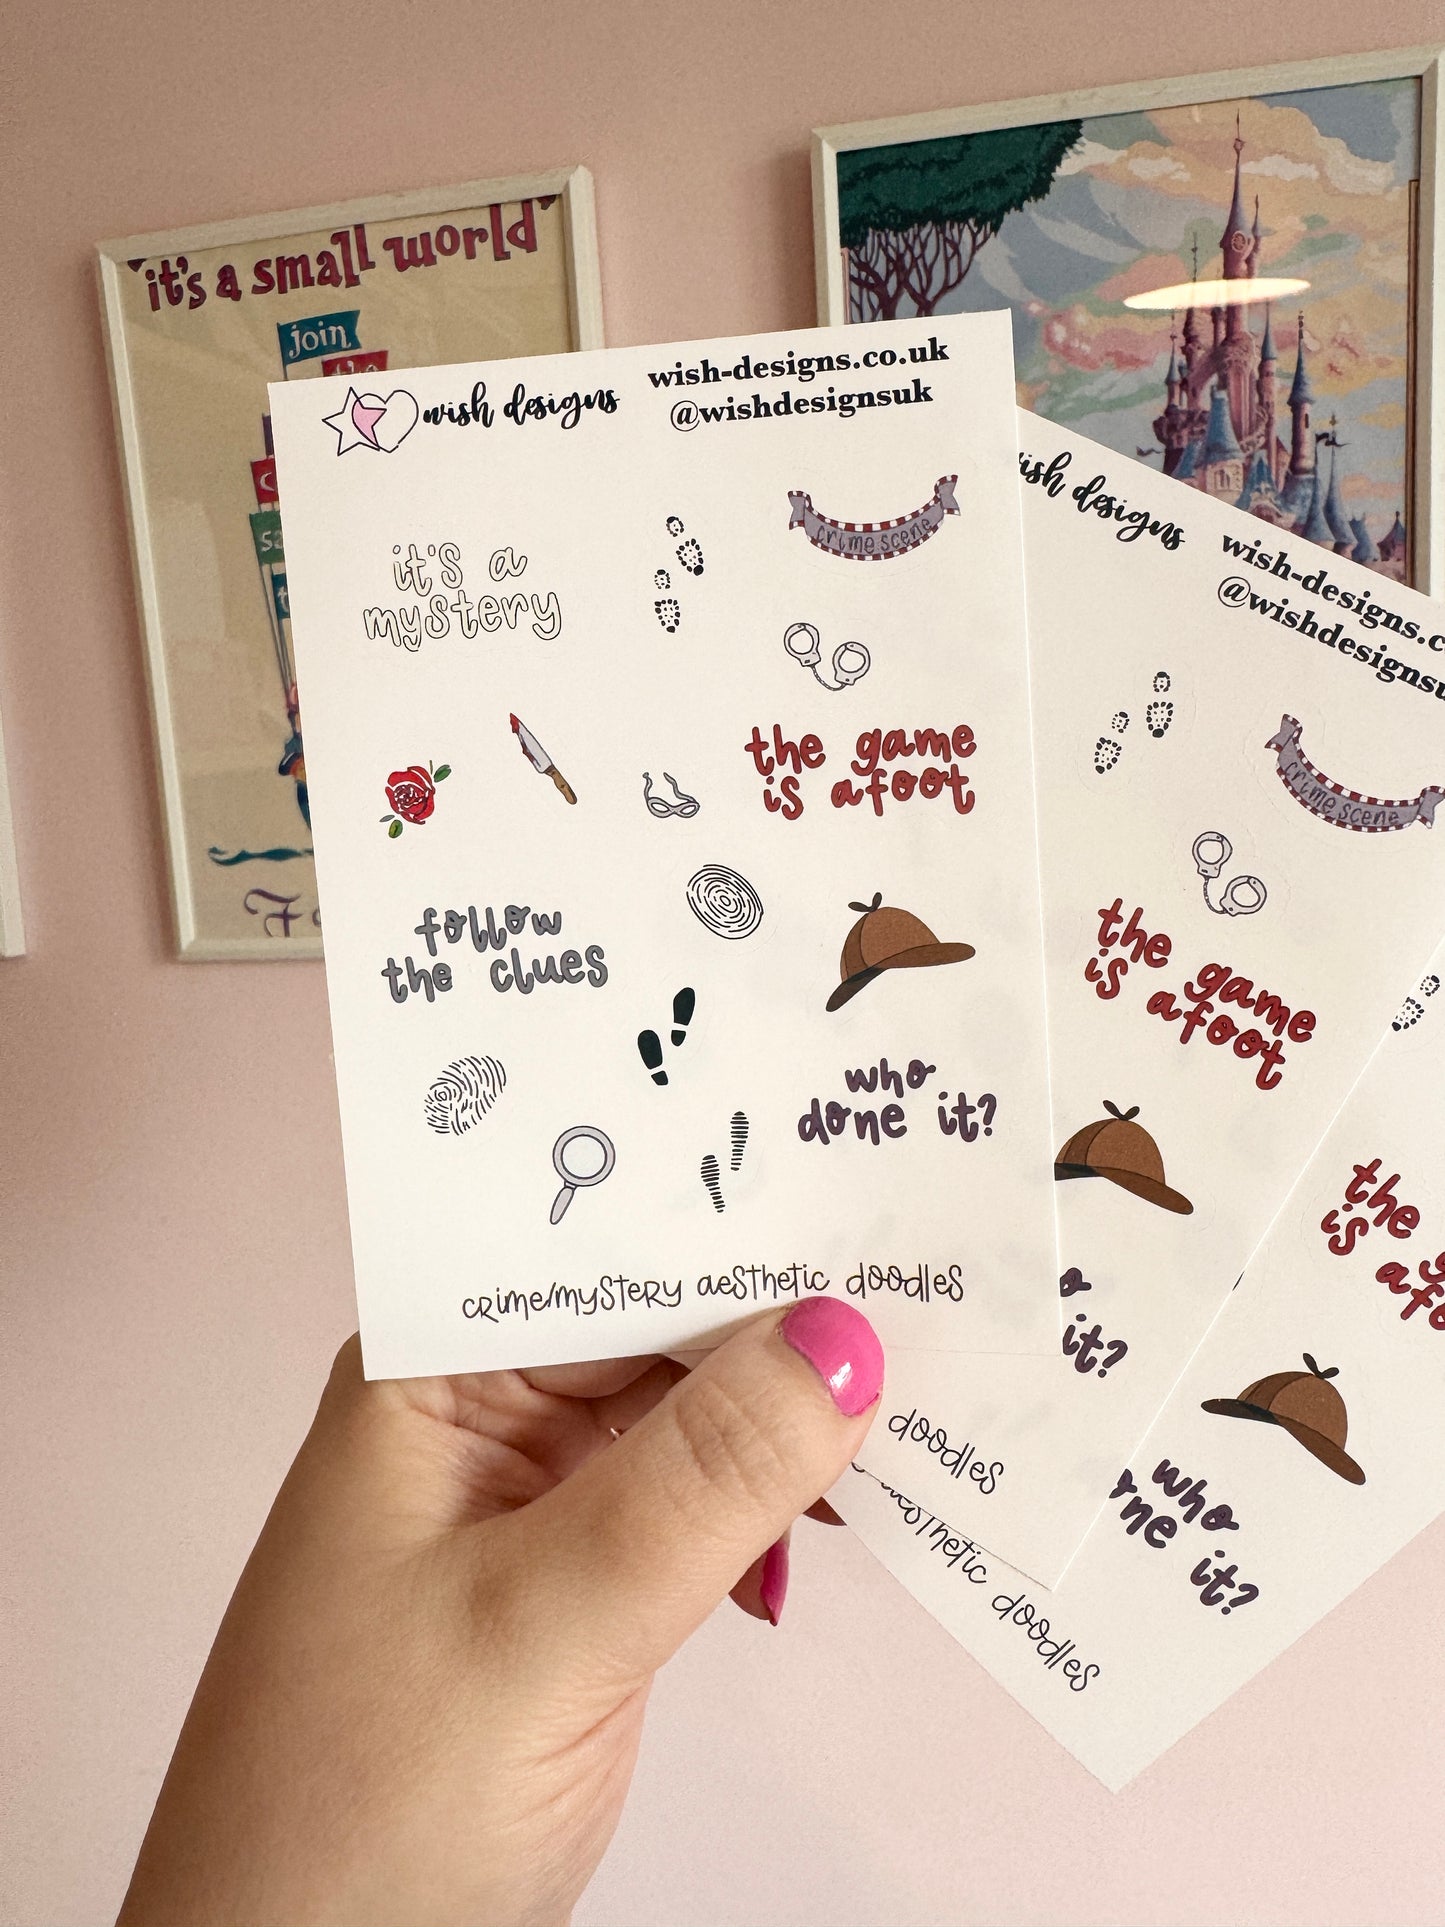 "it's a small world"
join
the
wish designs
wish-designs.co.uk
@wishdesignsuk
it's a
mystery
crime scene
the game
is afoot
follow
the clues
who
done it?
crime/mystery aesthetic doodles
wish designs
wish-designs.c
@wishdesignsu
crime scene
the game
is afoot
it?
doodles
the
is
who
it?
aesthetic doodles